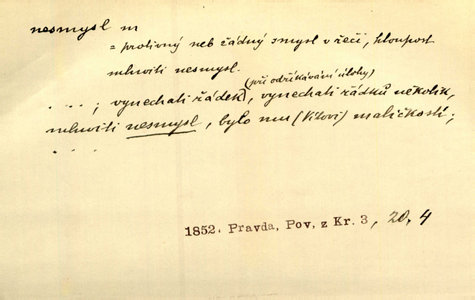 nesmysl m
= protivný neb žádný smysl v řeči, hloupost
mluviti nesmysl.
(při odříkávání úlohy)
. . . . ; vynechati řádek, vynechati řádků několik,
mluviti nesmysl, bylo mu (Vítovi) maličkostí;
. . .
1852. Pravda, Pov. z Kr. 3, 20, 4